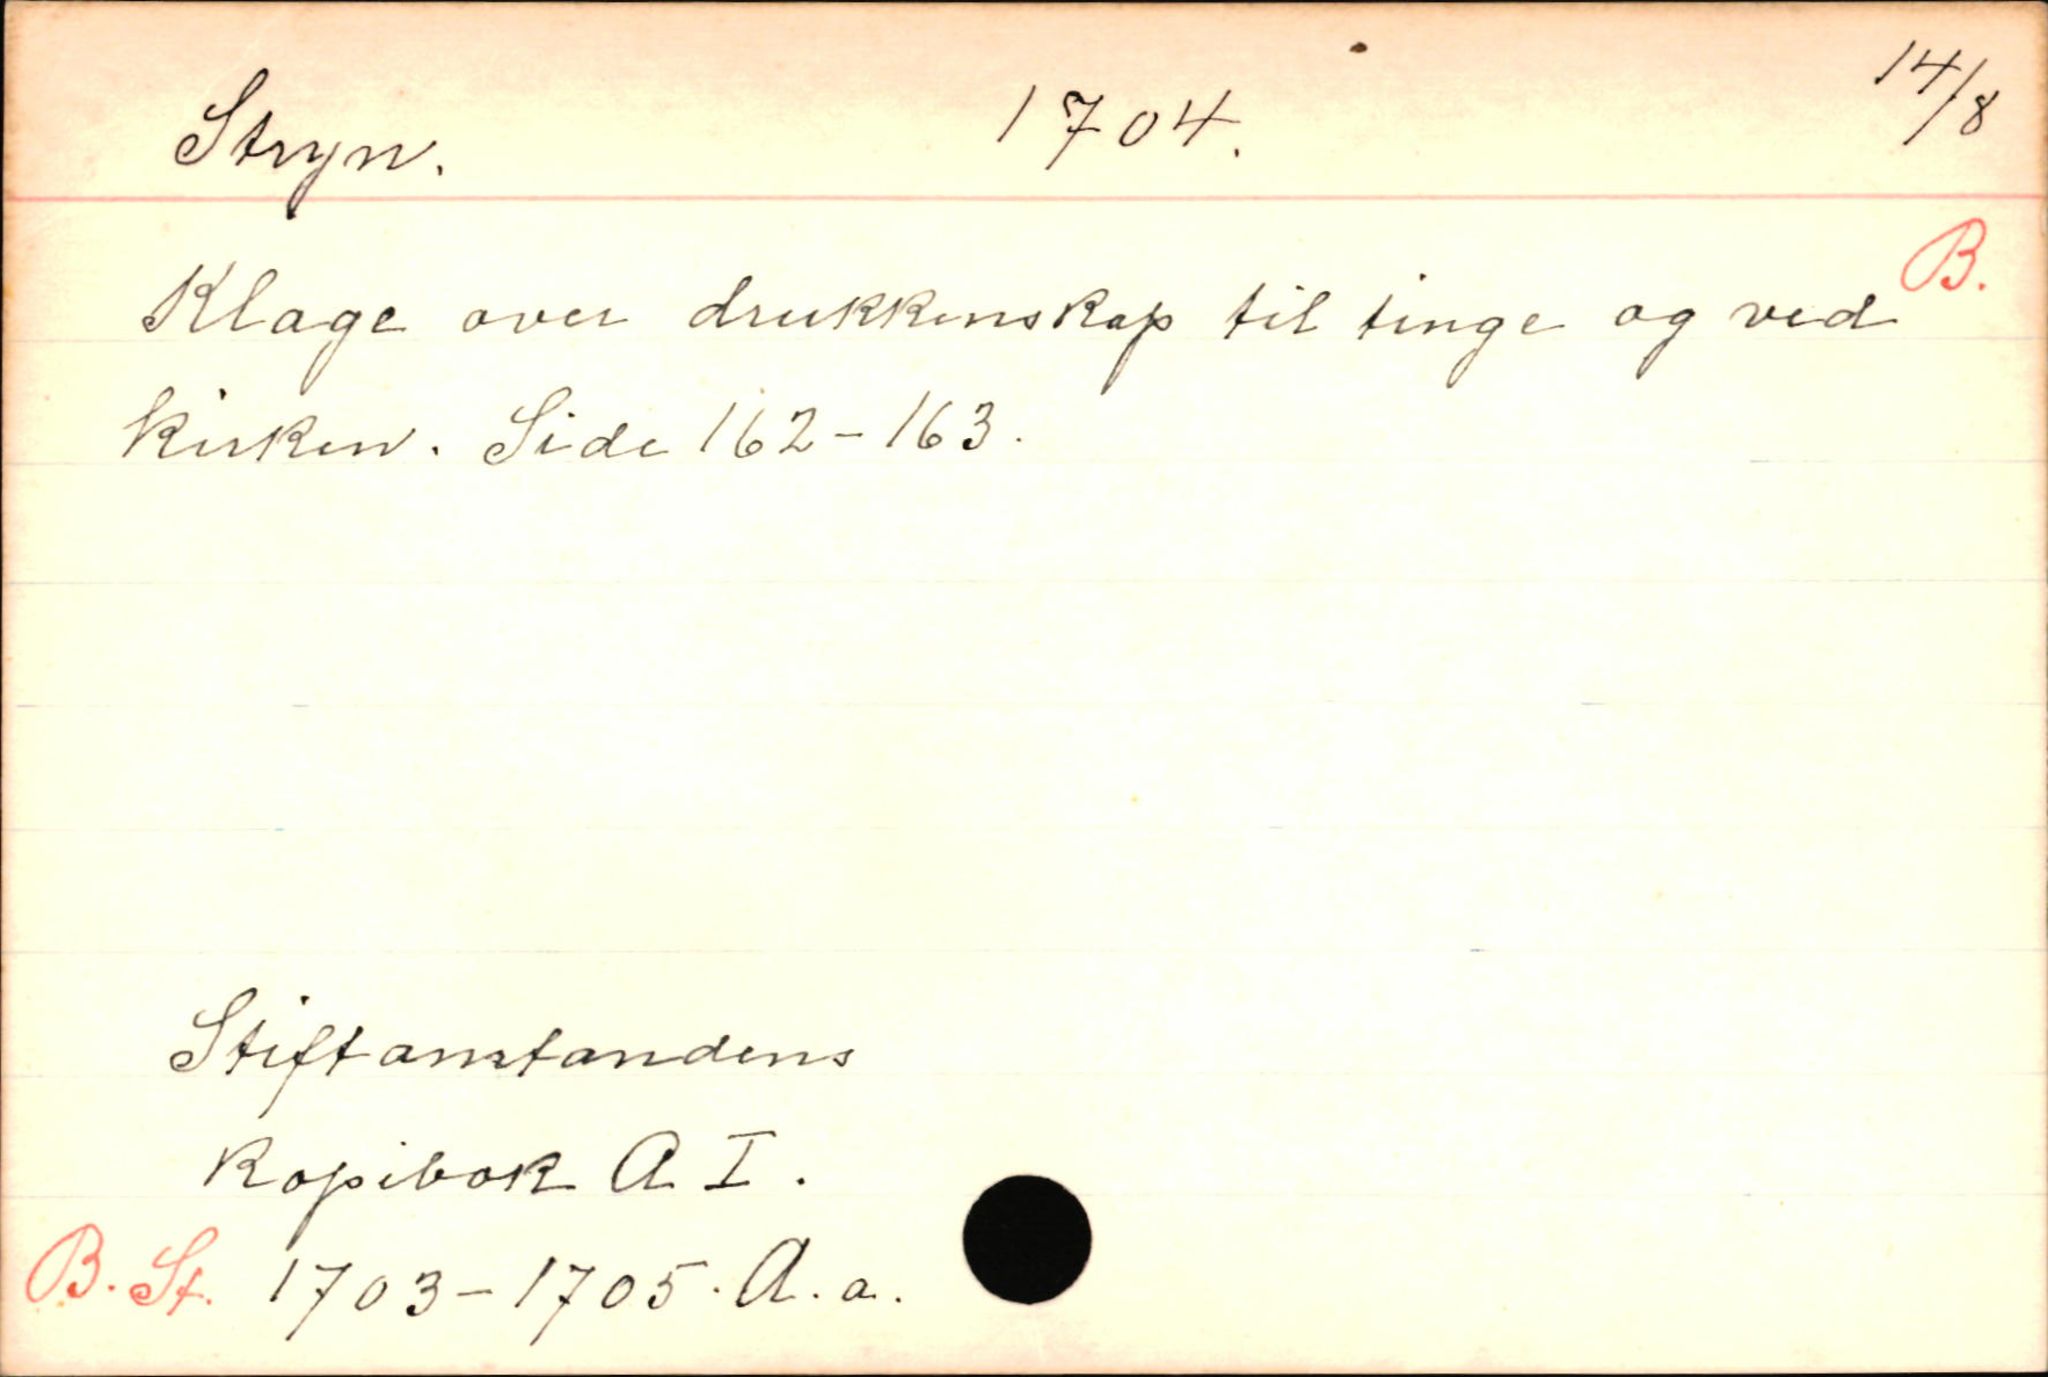 Stryn. 1704. 14/8
B.
Klage over drukkenskap til tinge og ved
kirken. Side 162-163.
Stiftamtandens
Kopibok A I.
B. St. 1703-1705. A. a.